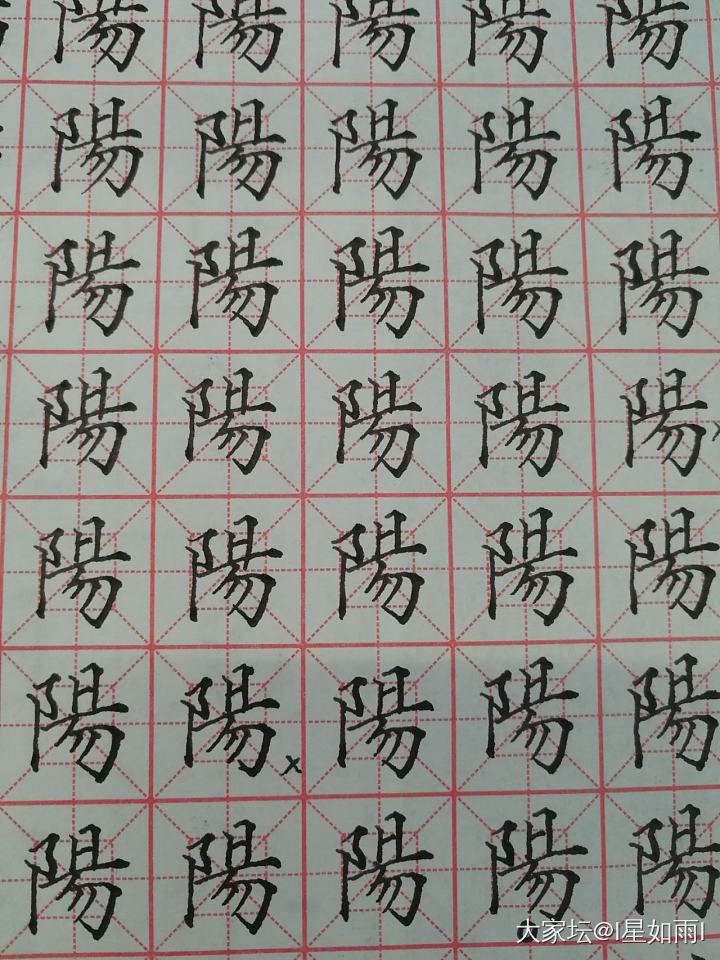 陽陽陽陽陽
陽陽陽陽陽
陽陽陽陽陽
陽陽陽陽陽
陽陽陽陽陽
陽陽x陽陽陽
陽陽陽陽陽
大家坛@I星如雨I